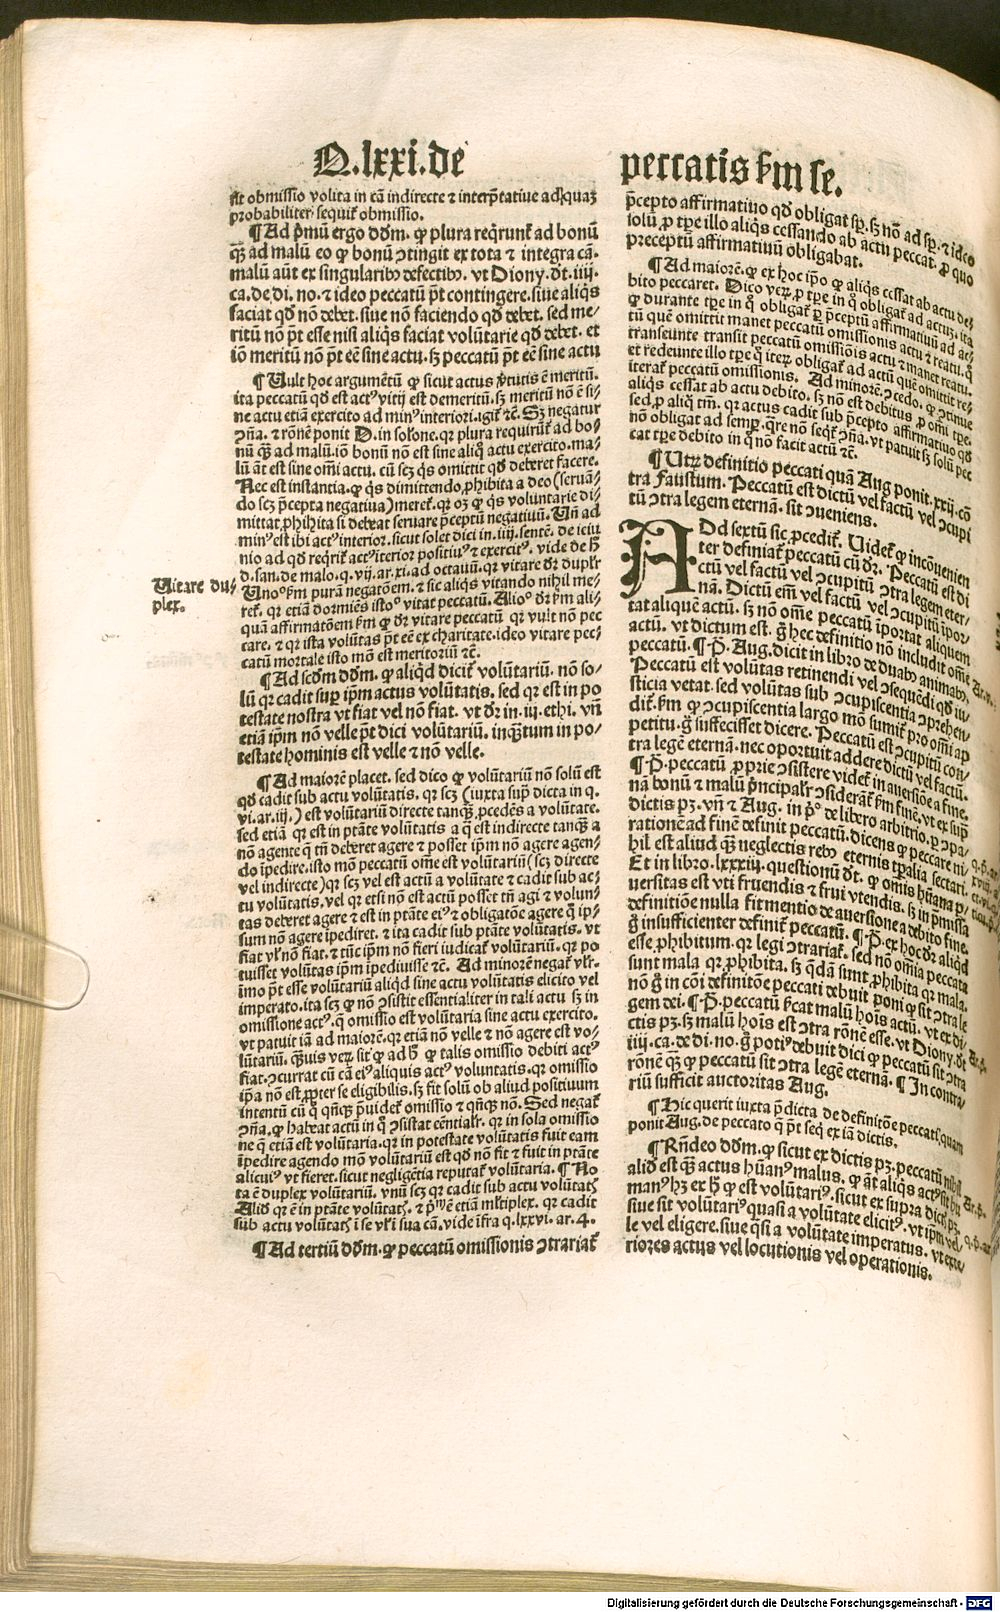 Q.lxxi.de
peccatis ẜm se.
est obmissio volita in cā indirecte ⁊ interp̄tatiue adquaꝫ
probabiliter sequit̄ obmissio.
¶ Ad p̄mū ergo dōm. ꝙ plura reqrunt̄ ad bonū
qꝫ̄ ad malū eo ꝙ bonū ↄtingit ex tota ⁊ integra cā.
malū aūt ex singularibꝰ defectibꝰ. vt Diony. dt. iiij.
ca. de di. no. ⁊ ideo peccatū pt̄ contingere. siue aliqs
faciat qd̄ nō debet. siue nō faciendo qd̄ debet. sed me-
ritū nō pt̄ esse nisi aliqs faciat volūtarie qd̄ debet. et
iō meritū nō pt̄ eē sine actu. sꝫ peccatū pt̄ eē sine actu
¶ Uult hoc argumētū ꝙ sicut actus v̓tutis ē meritū.
ita peccatū qd̄ est actꝰ vitij est demeritū. sꝫ meritū nō ē si-
ne actu etiā exercito ad minꝰ interiori. igit̄ ⁊c̄. Sꝫ negatur
ↄn̄a. ⁊ rōnē ponit D. in solōne. qꝛ plura requirūt̄ ad bo-
nū qꝫ̄ ad malū. iō bonū nō est sine aliq̄ actu exercito. ma-
lū āt est sine om̄i actu. cū scꝫ qs omittit qd̄ deberet facere.
Nec est instantia. ꝙ qs dimittendo ꝓhibita a deo (seruan-
do scꝫ p̄cepta negatiua) meret̄. qꝛ oꝫ ꝙ qs voluntarie di-
mittat ꝓhibita si debeat seruare p̄ceptū negatiuū. Uñ ad
minꝰ est ibi actꝰ interior. sicut solet dici in. iiij. sentē. de ieiu
nio ad qd̄ reqrit̄ actꝰ īterior positiuꝰ ⁊ exercitꝰ. vide de h̄
d. san. de malo. q. vij. ar. xi. ad octauū. qꝛ vitare dr̄ duplr̄
Unoº ẜm purā negatōem. ⁊ sic aliqs vitando nihil me-
ret̄. qꝛ etiā dormiēs istoº vitat peccatū. Alioº dr̄ ẜm ali-
quā affirmatōem ẜm ꝙ dr̄ vitare peccatū qꝛ vult nō pec
care. ⁊ qꝛ ista volūtas pt̄ eē ex charitate. ideo vitare pec-
catū mortale isto mō est meritoriū ⁊c̄.
¶ Ad scd̄m dōm. ꝙ aliqd dicit̄ volūtariū. nō so-
lū qꝛ cadit sup ip̄m actus volūtatis. sed qꝛ est in po
testate nostra vt fiat vel nō fiat. vt dr̄ in. iij. ethi. vñ
etiā ip̄m nō velle pt̄ dici volūtariū. inqꝫtum in po-
testate hominis est velle ⁊ nō velle.
¶ Ad maiorē placet. sed dico ꝙ volūtariū nō solū est
qd̄ cadit sub actu volūtatis. qꝛ scꝫ (iuxta sup̄ dicta in q.
vi. ar. iij.) est volūtariū directe tanqꝫ ꝓcedēs a volūtate.
sed etiā qꝛ est in ptāte volūtatis a q̄ est indirecte tanqꝫ a
nō agente q̄ tn̄ deberet agere ⁊ posset ip̄m nō agere agen-
do īpedire. isto mō peccatū om̄e est volūtariū (scꝫ directe
vel indirecte) qꝛ scꝫ vel est actū a volūtate ⁊ cadit sub ac-
tu volūtatis. vel qꝛ etsi nō est actū posset tn̄ agi ⁊ volun-
tas deberet agere ⁊ est in ptāte eiꝰ ⁊ obligatōe agere q̄ ip-
sum nō agere īpediret. ⁊ ita cadit sub ptāte volūtatis. vt
fiat vl̓ nō fiat. ⁊ tūc ip̄m nō fieri iudicat̄ volūtariū. qꝛ po
tuisset volūtas ip̄m īpediuisse ⁊c̄. Ad minorē negat̄ vl̓r.
īmo pt̄ esse volūtariū aliqd sine actu volūtatis elicito vel
imperato. ita scꝫ ꝙ nō ↄsistit essentialiter in tali actu sꝫ in
omissione actꝰ. q̄ omissio est volūtaria sine actu exercito.
vt patuit iā ad maiorē. qꝛ etiā nō velle ⁊ nō agere est vo-
lūtariū. qꝫuis verꝫ sit ꝙ ad h̄ ꝙ talis omissio debiti actꝰ
fiat. ↄcurrat cū cā eiꝰ aliquis actꝰ voluntatis. qꝛ omissio
ip̄a nō est ꝓpter se eligibilis. sꝫ fit solū ob aliud positiuum
intentū cū q̄ qn̄qꝫ p̄uidet̄ omissio ⁊ qn̄qꝫ nō. Sed negat̄
ↄn̄a. ꝙ habeat actū in q̄ ↄsistat eēntialr̄. qꝛ in sola omissio
ne q̄ etiā est volūtaria. qꝛ in potestate volūtatis fuit eam
īpedire agendo mō volūtariū est qd̄ nō fit ⁊ fuit in ptāte
alicuiꝰ vt fieret. sicut negligētia reputat̄ volūtaria. ¶ No
ta ē duplex volūtariū. vnū scꝫ qꝛ cadit sub actu volūtatꝭ
Aliō qꝛ ē in ptāte volūtatꝭ. ⁊ p̄mꝰ ē etiā mlt̄iplex. qꝛ cadit
sub actu volūtatꝭ ī se vl̓ ī sua cā. vide īfra q. lxxvi. ar. 4.
¶ Ad tertiū dōm. ꝙ peccatū omissionis ↄtrariat̄
Uitare du-
plex.
p̄cepto affirmatiuo qd̄ obligat sp̄. sꝫ nō ad sp̄. ⁊ ideo
solū ꝓ tp̄e illo aliqs cessando ab actu peccat. ꝓ quo
preceptū affirmatiuū obligabat.
¶ Ad maiorē. ꝙ ex hoc ip̄o ꝙ aliqs cessat ab actu de-
bito peccaret. Dico verꝫ ꝓ tp̄e in q̄ obligat̄ ad actū. ita
ꝙ durante tp̄e in q̄ obligat̄ ꝑ p̄ceptū affirmatiuū ad ac-
tū quē omittit manet peccatū omissionis actu ⁊ reatu. q̄
transeunte transit peccatū omissiōis actu ⁊ manet reatu.
et redeunte illo tp̄e q̄ iteꝝ obligat̄ ad actū quē omittit re-
iterat̄ peccatū omissionis. Ad minorē. ↄcedo. ꝙ ↄtinue
aliqs cessat ab actu debito. sꝫ nō est debitus ꝓ om̄i tp̄e.
sed ꝓ aliq̄ tm̄. qꝛ actus cadit sub p̄cepto affirmatiuo qd̄
nō obligat ad semꝑ. qre nō seqt̄ ↄn̄a. vt patuit sꝫ solū pec
cat tp̄e debito in q̄ nō facit actū ⁊c̄.
¶ Utꝝ definitio peccati quā Aug ponit. xxij. cō
tra Faustum. Peccatū est dictū vel factū vel ↄcupi
tū ↄtra legem eternā. sit ↄueniens.
Ad sextū sic ꝓcedit̄. Uidet̄ ꝙ incōuenien
ter definiat̄ peccatū cū dr̄. Peccatū est di
ctū vel factū vel ↄcupitū ↄtra legem eter-
nā. Dictū em̄ vel factū vel ↄcupitū īpor-
tat aliquē actū. sꝫ nō om̄e peccatū īportat aliquem
actū. vt dictum est. g̊ hec definitio nō includit om̄e
peccatū. ¶ P̄. Aug. dicit in libro de duabꝰ animabꝰ.
Peccatū est volūtas retinendi vel ↄsequēdi qd̄ iu-
sticia vetat. sed volūtas sub ↄcupiscentia ↄprehen-
dit̄. ẜm ꝙ ↄcupiscentia largo mō sumit̄ pro om̄i ap
petitu. g̊ suffecisset dicere. Peccatū est ↄcupitū con-
tra legē eternā. nec oportuit addere dictū vel factū.
¶ P̄. peccatū ꝓprie ↄsistere videt̄ in auersiōe a fine.
nā bonū ⁊ malū p̄ncipalr̄ ↄsiderāt̄ ẜm finē. vt ex sup̄
dictis pꝫ. vñ ⁊ Aug. in p̄º de libero arbitrio. ꝑ ↄpa-
rationē ad finē definit peccatū. dicens ꝙ peccare ni-
hil est aliud qꝫ̄ neglectis rebꝰ eternis tp̄alia sectari.
Et in libro. lxxxiij. questionū dt. ꝙ omīs hūana p-
uersitas est vti fruendis ⁊ frui vtendis. sꝫ in p̄missa
definitiōe nulla fit mentio de auersione a debito fine.
g̊ insufficienter definit̄ peccatū. ¶ P̄. ex hoc dr̄ aliqd
esse ꝓhibitum. qꝛ legi ↄtrariat̄. sed nō om̄ia peccata
sunt mala qꝛ ꝓhibita. sꝫ qdā sunt ꝓhibita qꝛ mala.
nō g̊ in cōi definitōe peccati debuit poni ꝙ sit ↄtra le
gem dei. ¶ P̄. peccatū ẜcat malū hoīs actū. vt ex di-
ctis pꝫ. sꝫ malū hoīs est ↄtra rōnē esse. vt Diony. dt
iiij. ca. de di. no. g̊ potiꝰ debuit dici ꝙ peccatū sit ↄtra
rōnē qꝫ̄ ꝙ peccatū sit ↄtra legē eternā. ¶ In contra-
riū sufficit auctoritas Aug.
¶ Hic querit iuxta p̄dicta de definitōe peccati quam
ponit Aug. de peccato q̄ pt̄ seq̄ ex iā dictis.
¶ Rn̄deo dōm. ꝙ sicut ex dictis pꝫ. peccatū nihil
aliō est qꝫ̄ actus hūanꝰ malus. ꝙ āt aliqs actꝰ sit hu
manꝰ hꝫ ex h̄ ꝙ est volūtariꝰ. sicut ex supra dictꝭ pꝫ.
siue sit volūtariꝰ quasi a volūtate elicitꝰ. vt ip̄m vel-
le vel eligere. siue qsi a volūtate imperatus. vt exte-
riores actus vel locutionis vel operationis.
Digitalisierung gefördert durch die Deutsche Forschungsgemeinschaft - DFG